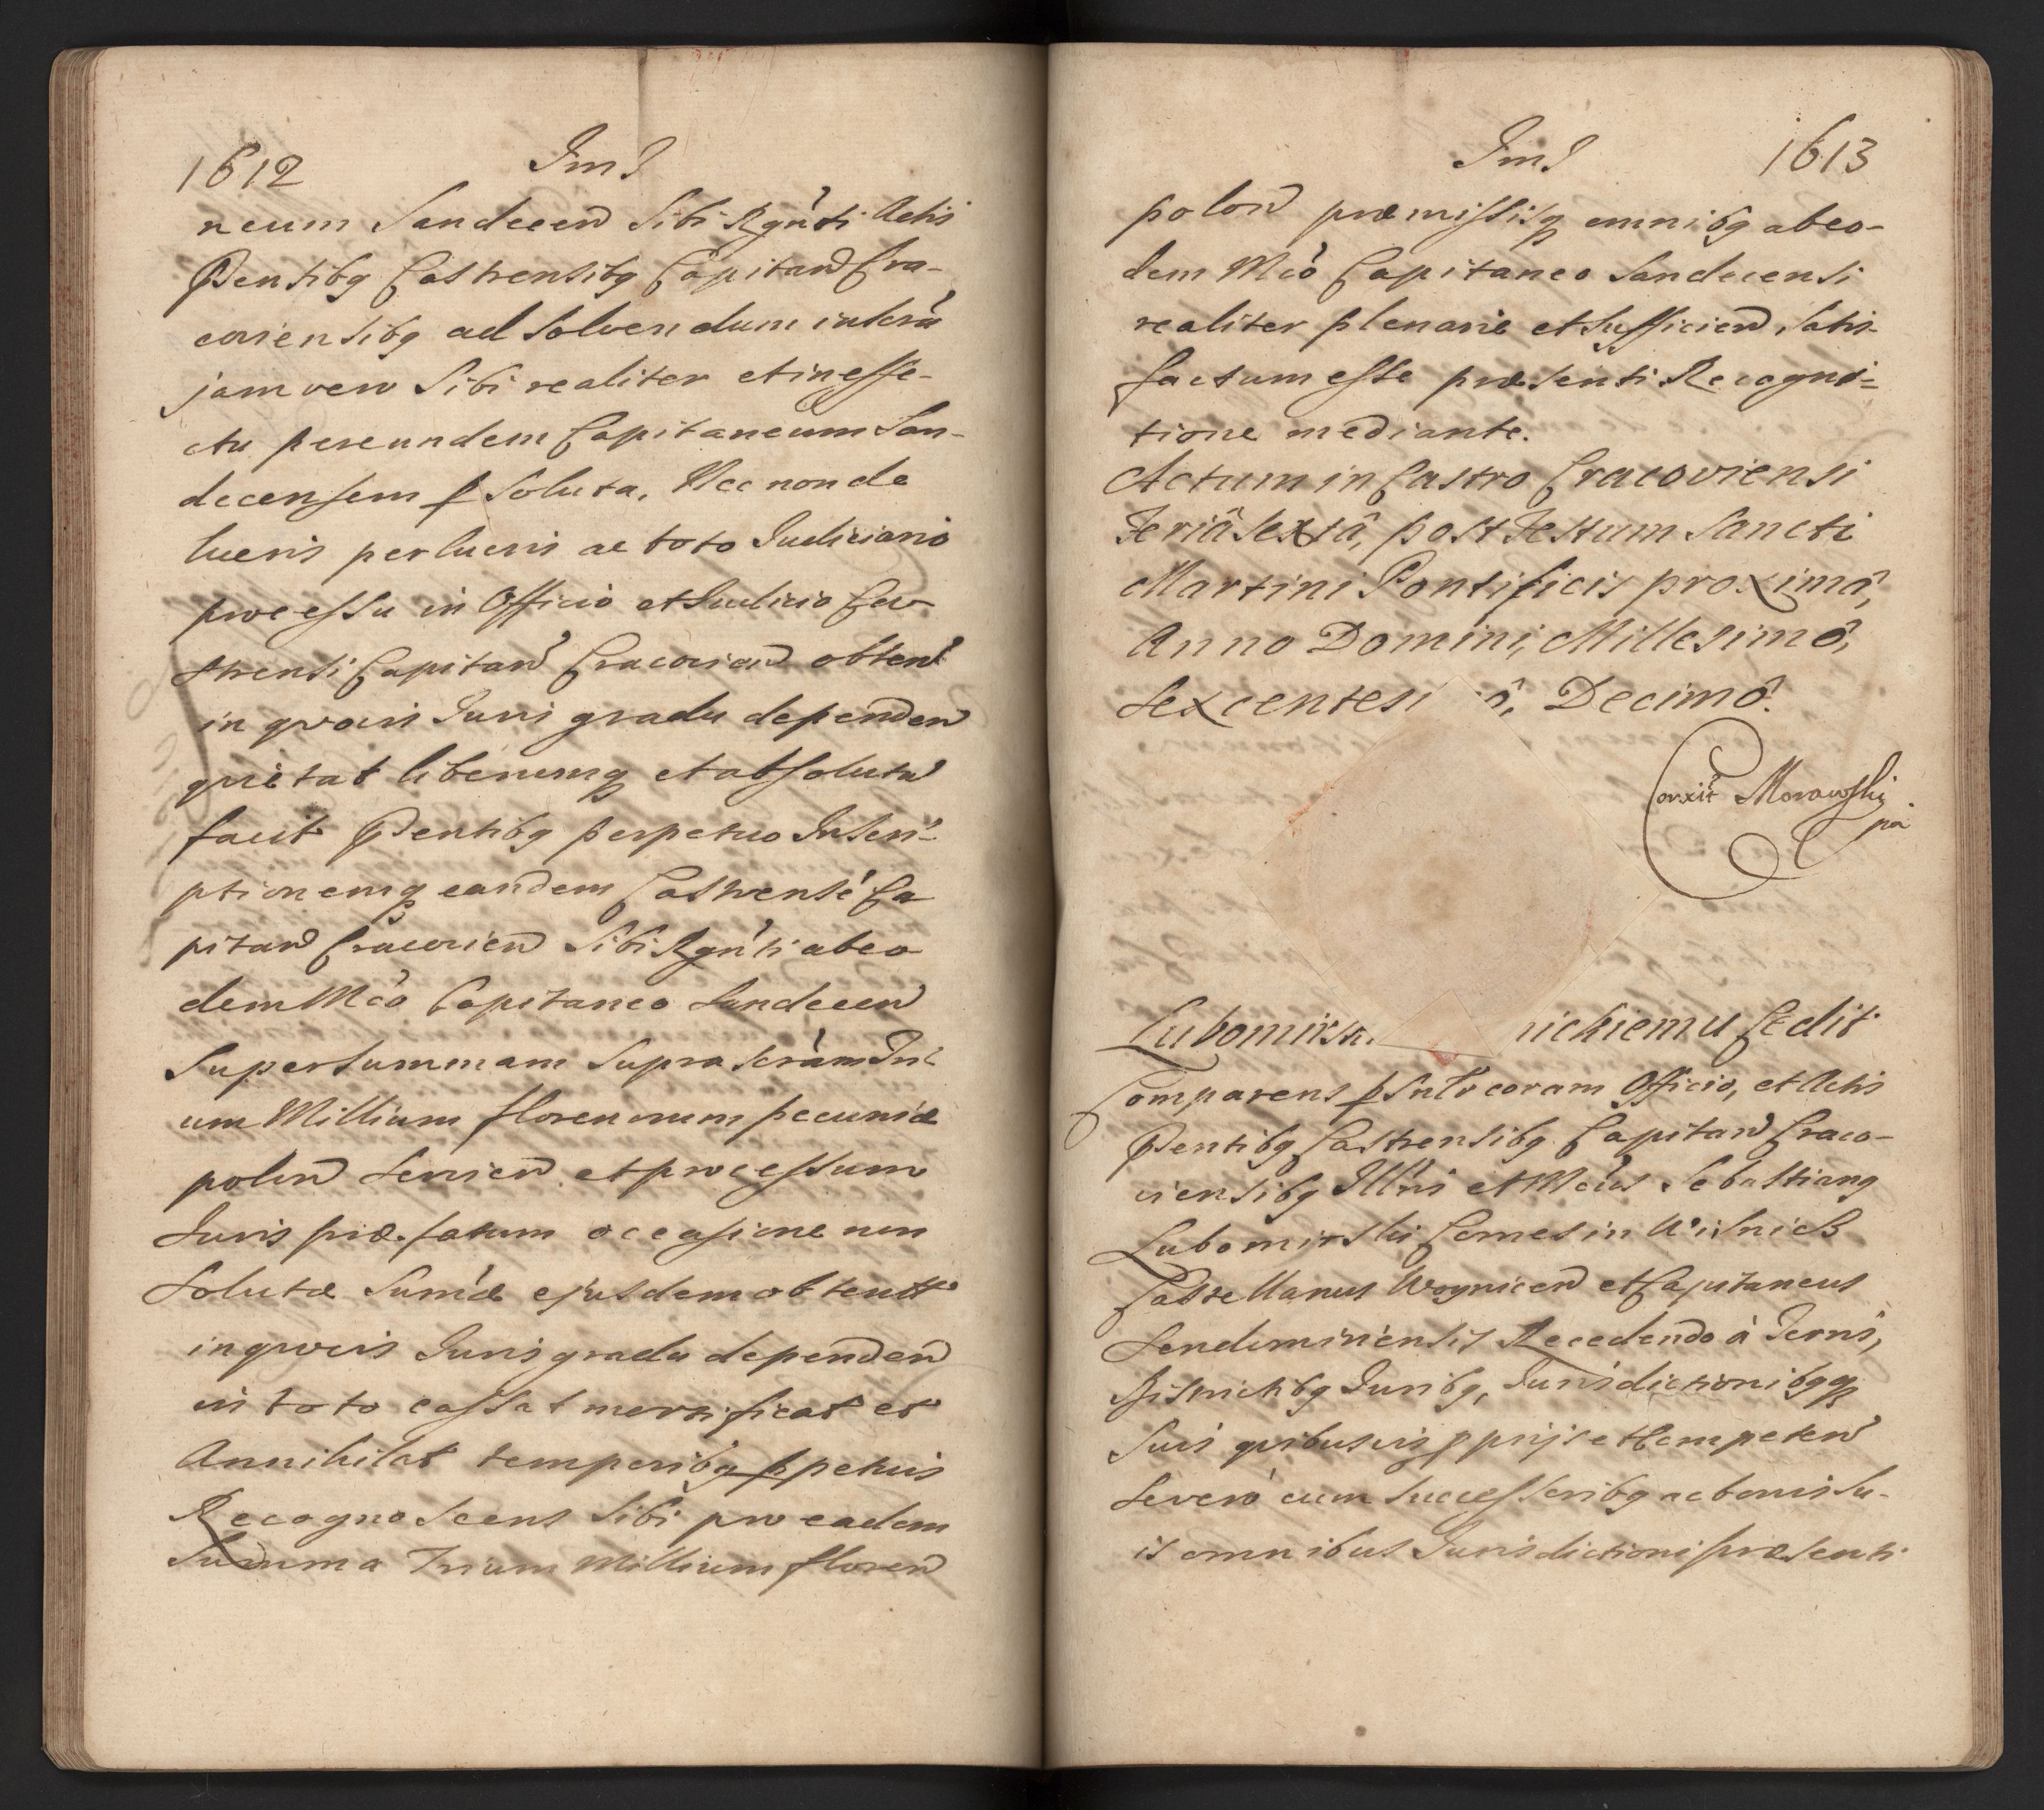 1612 Jms
neum Sandecen Sibi Rgnti Actis
Pentibq Castrensibq Capitan Cra-
coviensibq ad Solvendum inscra
jam vero Sibi realiter et in effe-
ctu per eundem Capitaneum San-
decensem p Soluta, Nec non de
lucris perlucris ac toto Judiciario
processu in Officio et Judicio Ca-
strensi Capitan Cracovien obten
in qvovis Juris gradu dependen
quietat liberumq et absolutu
facit Pentibq perpetuo Inscri-
ptionemq eandem Castrense Ca-
pitan Cracovien Sibi Rgnti ab eo-
dem Mco Capitaneo Sandecen
Super Summam Supra scram Tri-
um Millium florenorum pecuniæ
polon Servien et processum
Juris præfatum occasione non
Solutæ Sumæ ejusdem obtent
in qvovis Juris gradu dependen
in toto cassat mortificat et
Annihilat temporibq ppetuis
Recognoscens Sibi pro eadem
Summa Trium Millium floren
Jms 1613
polon præmissisq omnibq ab eo-
dem Mco Capitaneo Sandecensi
realiter plenarie et Sufficien, Satis-
factum esse præsenti Recogni-
tione mediante.
Actum in Castro Cracoviensi
Feriâ Sextâ, post Festum Sancti
Martini Pontificis proximâ,
Anno Domini, Millesimô,
Sexcentesi ô, Decimô.
Corxit Morawski
pa
Lubomirsk nickiemu Cedit
Comparens pSnlr coram Officio, et Actis
Pentibq Castrensibq Capitan Craco-
viensibq Illris et Mcus Sebastianq
Lubomirski Comes in Wisnicz
Castellanus Woynicen et Capitaneus
Sendomiriensis Recedendo à Terris,
Districtibq Juribq, Jurisdictionibqq
Suis qvibusvis pprijs et Competen
Severo cum Successoribq ac bonis Su-
is omnibus Jurisdictioni præsenti